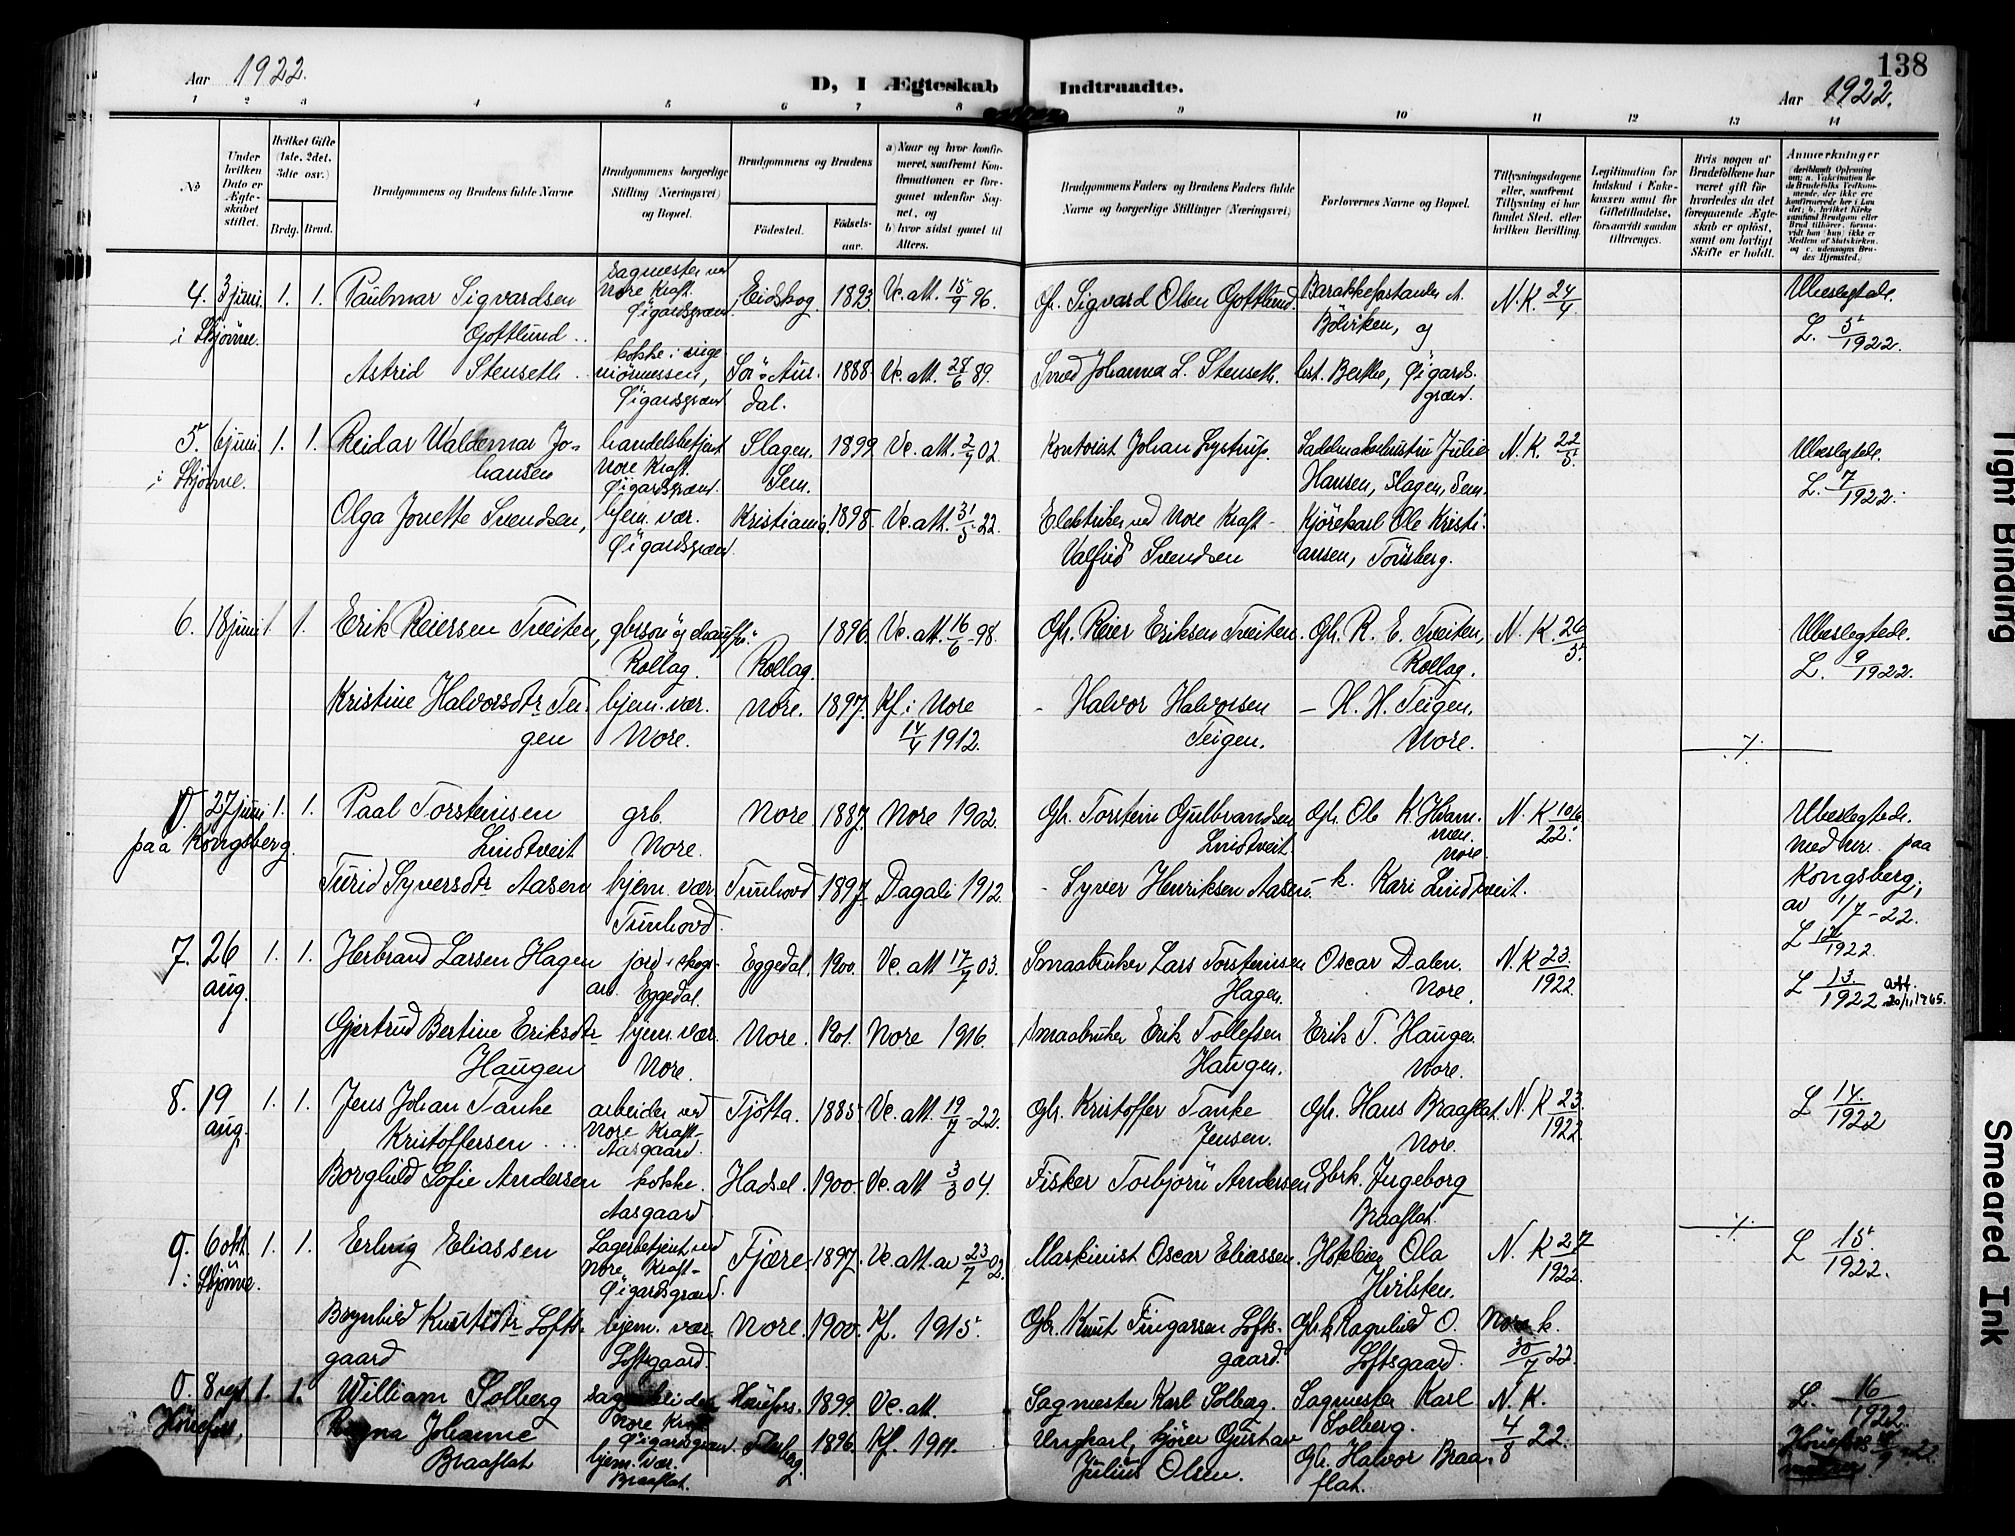 138
Aar 1922.
D, I Ægteskab Indtraadte.
Aar 1922.
1 2 3 4 5 6 7 8 9 10 11 12 13 14
No
Under hvilken Dato er Ægteskabet stiftet.
Hvilket Gifte (1ste, 2det, 3die osv.)
Brdg. Brud.
Brudgommens og Brudens fulde Navne
Brudgommens borgerlige Stilling (Næringsvei) og Bopæl.
Brudgommens og Brudens
Fødested.
Fødselsaar.
a) Naar og hvor konfirmeret, saafremt Konfirmationen er foregaaet udenfor Sognet, og
b) hvor sidst gaaet til Alters.
Brudgommens Faders og Brudens Faders fulde Navne og borgerlige Stillinger (Næringsvei)
Forlovernes Navne og Bopæl.
Tillysningsdagene eller, saafremt Tillysning ei har fundet Sted, efter hvilken Bevilling.
Legitimation for Indskud i Enkekassen samt for Giftetilladelse, forsaavidt saadan tiltrænges.
Hvis nogen af Brudefolkene har været gift før hvorledes da det foregaaende Ægteskab er opløst, samt om lovligt Skifte er holdt.
Anmærkninger
4. 3 juni. 1. 1. Paulmar Sigvardsen
i Skjønne. Gottlund
Sagmester ved Nore Kraft. Øigardsgrænd
Eidskog. 1893. Vc. att. 15/9 96.
Gh. Sigvard Olsen Gottlund.
Barakkeforstander A. Bölviken, og
N. K. 24/4
Ubeslegtede.
L. 5/1922.
Astrid Stenseth
kokke i
Øigardsgrænd
Sör-Aurdal. 1888. Vc. att. 28/6 89.
Johanna L. Stenseth.
best. Berthe, Øigardsgrænd.
5. 6 juni. 1. 1. Reidar Valdemar Johansen
i Skjønne.
handelsbetjent Nore Kraft. Øigardsgrænd.
Slagen. Sem. 1899 Vc. att. 2/7 02.
Kontorist Johan Lystrup.
Sadelmakerhustru Julie Hansen, Slagen, Sem.
N. K. 22/5.
Ubeslegtede.
L. 7/1922.
Olga Jonette Svendsen,
hjem. vær. Øigardsgrænd.
Kristiania. 1898. Vc. att. 31/5 22.
Elektriker ved Nore Kraft-
Valfrid Svendsen
Kjörekarl Ole Kristiansen, Tönsberg.
6. 18 juni 1. Erik Reiersen Tveiten,
gbrsön og chaufför Rollag.
Rollag. 1896. Vc. att. 16/6 -98.
Gh. Reier Eriksen Tveiten
Gh. R. E. Tveiten, Rollag.
N. K. 26/5.
Ubeslegtede.
L. 9/1922.
Kristine Halvorsdtr Teigen
hjem. vær. Nore.
Nore. 1897. Kf. i Nore 14/4 1912.
- Halvor Halvorsen Teigen.
- H. H. Teigen, Nore.
0 27 juni 1. 1. Paal Torsteinsen Lindtveit
paa Kongsberg.
grb. Nore.
Nore 1887. Nore 1902.
Gh. Torstein Gulbrandsen Lindtveit.
Gh. Ole K. Nore.
N. K 10/6 22.
Ubeslegtede.
paa Kongsberg,
av 1/7-22.
L 1922.
Turid Syversdtr Aasen
hjem. vær Tunhovd.
Tunhovd 1897. Dagali 1912.
- Syver Henriksen Aasen
- k. Kari Lindtveit.
7. 26 aug. 1. 1. Herbrand Larsen Hagen
jord- skogar. Eggedal.
Eggedal. 1900. Vc. att 17/7 03.
Smaabruker Lars Torsteinsen Hagen.
Oscar Dalen. Nore.
N. K 23. 1922.
L 13/1922 att. 20/11, 1965.
Gjertrud Bertine Eriksdtr Haugen
hjem. vær. Nore.
Nore. 1901. Nore 1916.
Smaabruker Erik Tollefsen Haugen.
Erik T. Haugen. Nore.
8. 19 aug. 1. 1. Jens Johan Tanke Kristoffersen
arbeider ved Nore Kraft- Aasgaard.
Tjötta. 1885. Vc. att. 19/7-22.
Gh. Kristoffer Tanke Jensen.
Gh. Hans Braaflat. Nore.
N. K 23. 1922.
L 14/1922
Borghild Sofie Andersen
kokke. Aasgaard
Hadsel. 1900. Vc. att 3/3 04.
Fisker Torbjörn Andersen
Gbrk. Ingeborg Braaflat.
9. 6 okt. 1. 1. Erling Eliassen
i Skjönne.
Lagerbetjent ved Nore Kraft- Øigardsgrænd.
Fjære. 1897. Vc. att. av 23/7 02.
Maskinist Oscar Eliassen.
Hoteleier Ola Hvilsten.
N. K 27 1922.
L 15/1922.
Brynhild Knutsdtr Loftsgaard
hjem. vær. Loftsgaard.
Nore. 1900. Kf. 1915.
Gh. Knut Fingarsen Loftsgaard.
Gh. k Ragnhild O. Loftsgaard.
Nore k. 30/7 22.
0. 8 sept 1. 1. William Solberg
Hönefoss.
Nore Kraft Øigardsgrænd.
Hönefoss. 1899. Vc. att.
Sagmester Karl Solberg.
Sagmester Karl Solberg.
N. K. 4/8 22.
L. 16/1922.
Ragna Johanne Braaflat
hjem. vær. Braaflat.
Flesberg 1896. Kf. 1911.
Ungkarl, kjörer Gustav Julius Olsen.
Gh. Halvor Braaflat.
Tight Binding
Smeared Ink